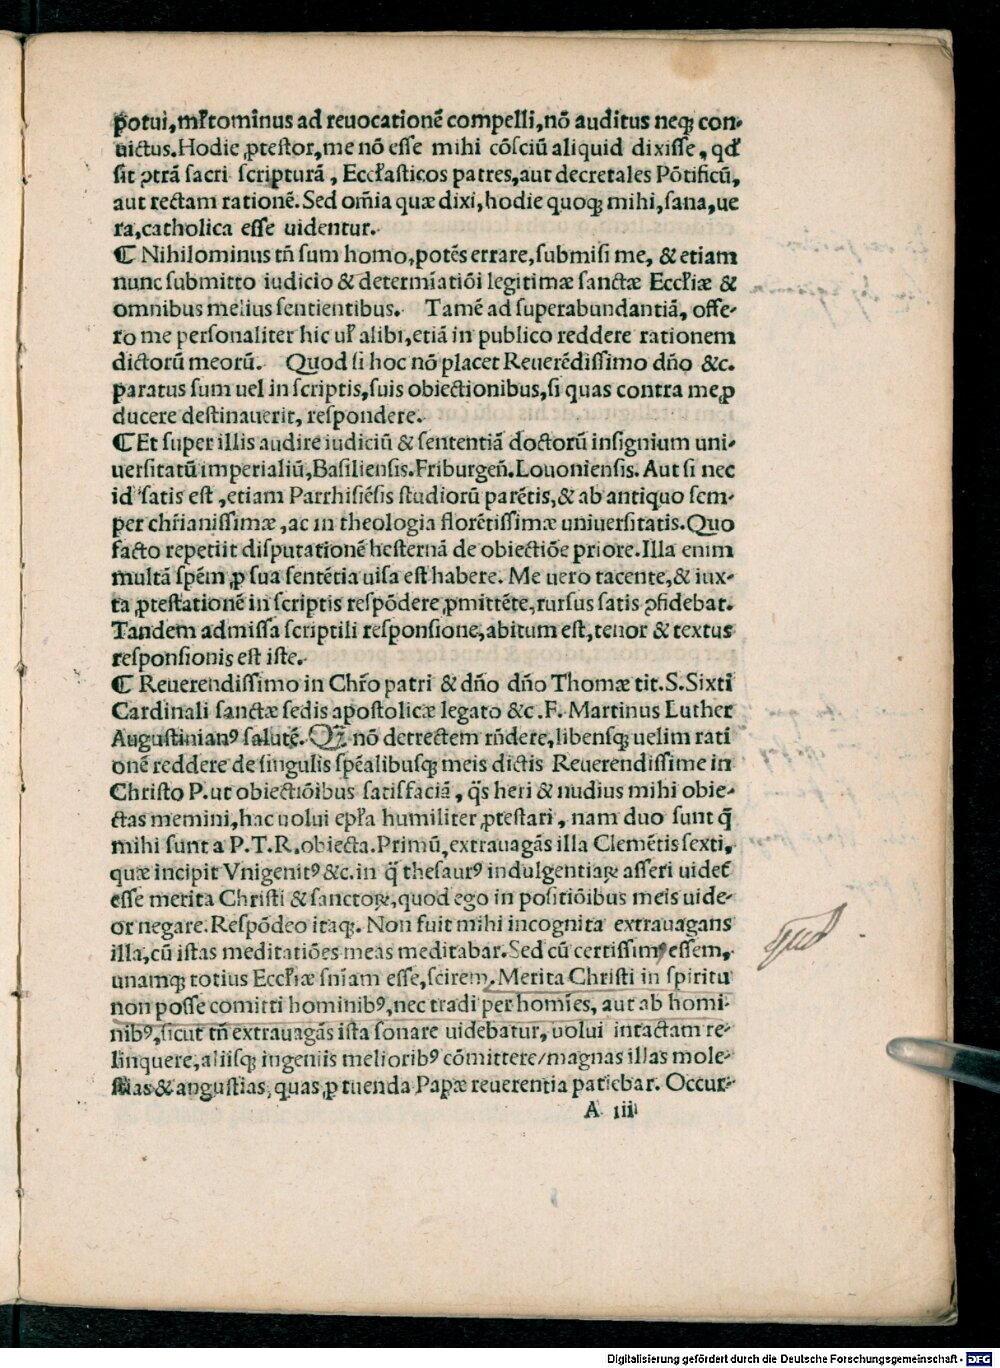 ꝓotui, mľtominꝰ ad reuocationē compelli, nō auditus neqꝫ con-
uictus. Hodie ꝓtestor, me nō esse mihi cōsciū aliquid dixisse, qđ
sit ꝯtrā sacri scripturā, Eccľasticos patres, aut decretales Pōtificū,
aut rectam rationē. Sed om̄ia quæ dixi, hodie quoqꝫ mihi, sana, ue
ra, catholica esse uidentur.
¶ Nihilominus tn̄ sum homo, potēs errare, submisi me, & etiam
nunc submitto iudicio & determīatiōi legitimæ sanctæ Eccľiæ &
omnibus melius sentientibus. Tamē ad superabundantiā, offe-
ro me personaliter hic uľ alibi, etiā in publico reddere rationem
dictorū meorū. Quod si hoc nō placet Reuerēdissimo dn̄o &c.
paratus sum uel in scriptis, suis obiectionibus, si quas contra me ꝓ
ducere destinauerit, respondere.
¶ Et super illis audire iudiciū & sententiā doctorū insignium uni-
uersitatū imperialiū, Basiliensis. Friburgen̄. Louoniensis. Aut si nec
id satis est, etiam Parrhisiēsis studiorū parētis, & ab antiquo sem-
per chr̄ianissimæ, ac in theologia florētissimæ uniuersitatis. Quo
facto repetiit disputationē hesternā de obiectiōe priore. Illa enim
multā spēm ꝓ sua sentētia uisa est habere. Me uero tacente, & iux-
ta ꝓtestationē in scriptis respōdere ꝓmittēte, rursus satis ꝯfidebat.
Tandem admissa scriptili responsione, abitum est, tenor & textus
responsionis est iste.
¶ Reuerendissimo in Chr̄o patri & dn̄o dn̄o Thomæ tit. S. Sixti
Cardinali sanctæ sedis apostolicæ legato &c. F. Martinus Luther
Augustinianꝰ salutē. Qꝫ nō detrectem rn̄dere, libensqꝫ uelim rati
onē reddere de singulis spēalibusqꝫ meis dictis Reuerendissime in
Christo P. ut obiectiōibus satisfaciā, q̄s heri & nudius mihi obie-
ctas memini, hac uolui epľa humiliter ꝓtestari, nam duo sunt q̄
mihi sunt a P. T. R. obiecta. Primū, extrauagās illa Clemētis sexti,
quæ incipit Vnigenitꝰ &c. in q̄ thesaurꝰ indulgentiaꝝ asseri uidet̄
esse merita Christi & sanctoꝝ, quod ego in positiōibus meis uide-
or negare. Respōdeo itaqꝫ. Non fuit mihi incognita extrauagans
illa, cū istas meditatiōes meas meditabar. Sed cū certissimꝰ essem,
unamqꝫ totius Eccľiæ sn̄iam esse, scirem, Merita Christi in spiritu
non posse comitti hominibꝰ, nec tradi per homīes, aut ab homi-
nibꝰ, sicut tn̄ extrauagās ista sonare uidebatur, uolui intactam re-
linquere, aliisqꝫ ingeniis melioribꝰ cōmittere/magnas illas mole-
stias & angustias, quas ꝓ tuenda Papæ reuerentia patiebar. Occur-
A iii
Digitalisierung gefördert durch die Deutsche Forschungsgemeinschaft - DFG